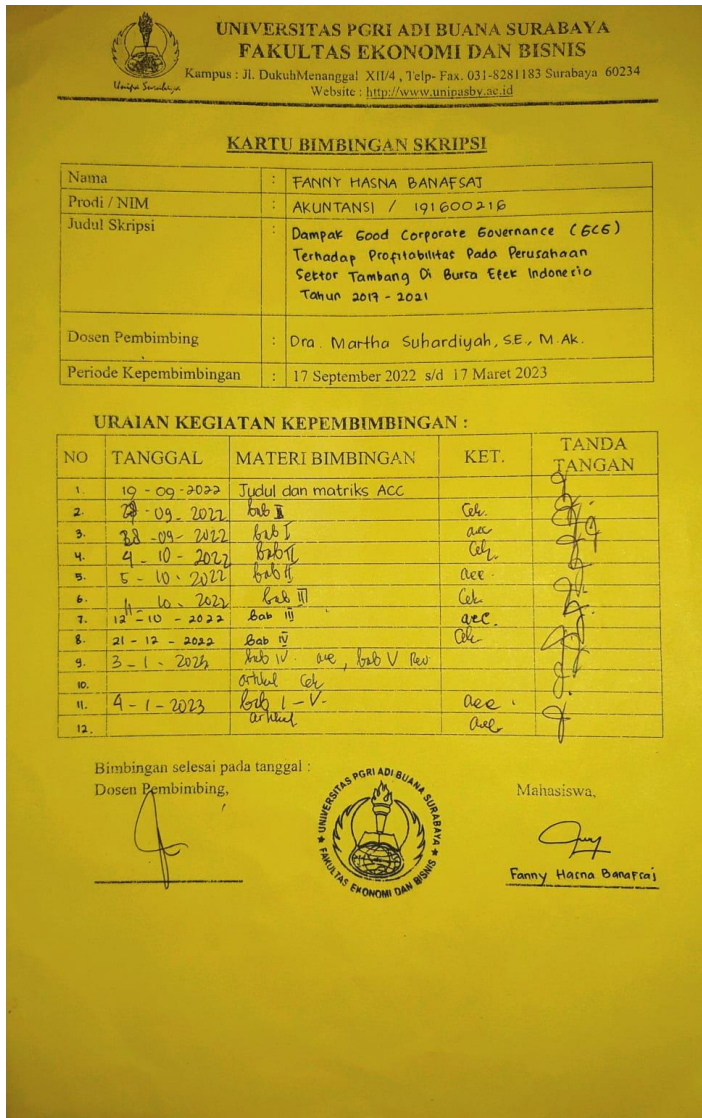 UNIVERSITAS PGRI ADI BUANA SURABAYA
FAKULTAS EKONOMI DAN BISNIS
Kampus : Jl. DukuhMenanggal XII/4 , Telp- Fax. 031-8281183 Surabaya 60234
Website : http://www.unipasby.ac.id
Unipa Surabaya
KARTU BIMBINGAN SKRIPSI
Nama : FANNY HASNA BANAFSAJ
Prodi / NIM : AKUNTANSI / 191600216
Judul Skripsi : Dampak Good Corporate Governance (GCG)
Terhadap Profitabilitas Pada Perusahaan
Sektor Tambang Di Bursa Efek Indonesia
Tahun 2017 - 2021
Dosen Pembimbing : Dra. Martha Suhardiyah, S.E., M.Ak.
Periode Kepembimbingan : 17 September 2022 s/d 17 Maret 2023
URAIAN KEGIATAN KEPEMBIMBINGAN :
NO TANGGAL MATERI BIMBINGAN KET. TANDA TANGAN
1. 19 - 09 - 2022 Judul dan matriks ACC
2. - 09 - 2022 bab Cek.
3. - 09 - 2022 bab I acc
4. 4 - 10 - 2022 bab II Cek
5. 5 - 10 - 2022 bab II acc.
6. 11 - 10 - 2022 bab III Cek
7. 12 - 10 - 2022 Bab III acc.
8. 21 - 12 - 2022 Bab IV Cek
9. 3 - 1 - 2023 bab IV acc, bab V Rev
10. artikel Cek
11. 4 - 1 - 2023 bab I - V acc.
12. artikel acc
Bimbingan selesai pada tanggal :
Dosen Pembimbing,
Mahasiswa,
UNIVERSITAS PGRI ADI BUANA SURABAYA
FAKULTAS EKONOMI DAN BISNIS
Fanny Hasna Banafsaj